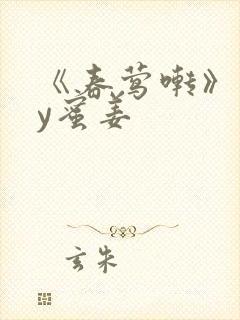 《春莺啭》
y蜜姜
玄朱